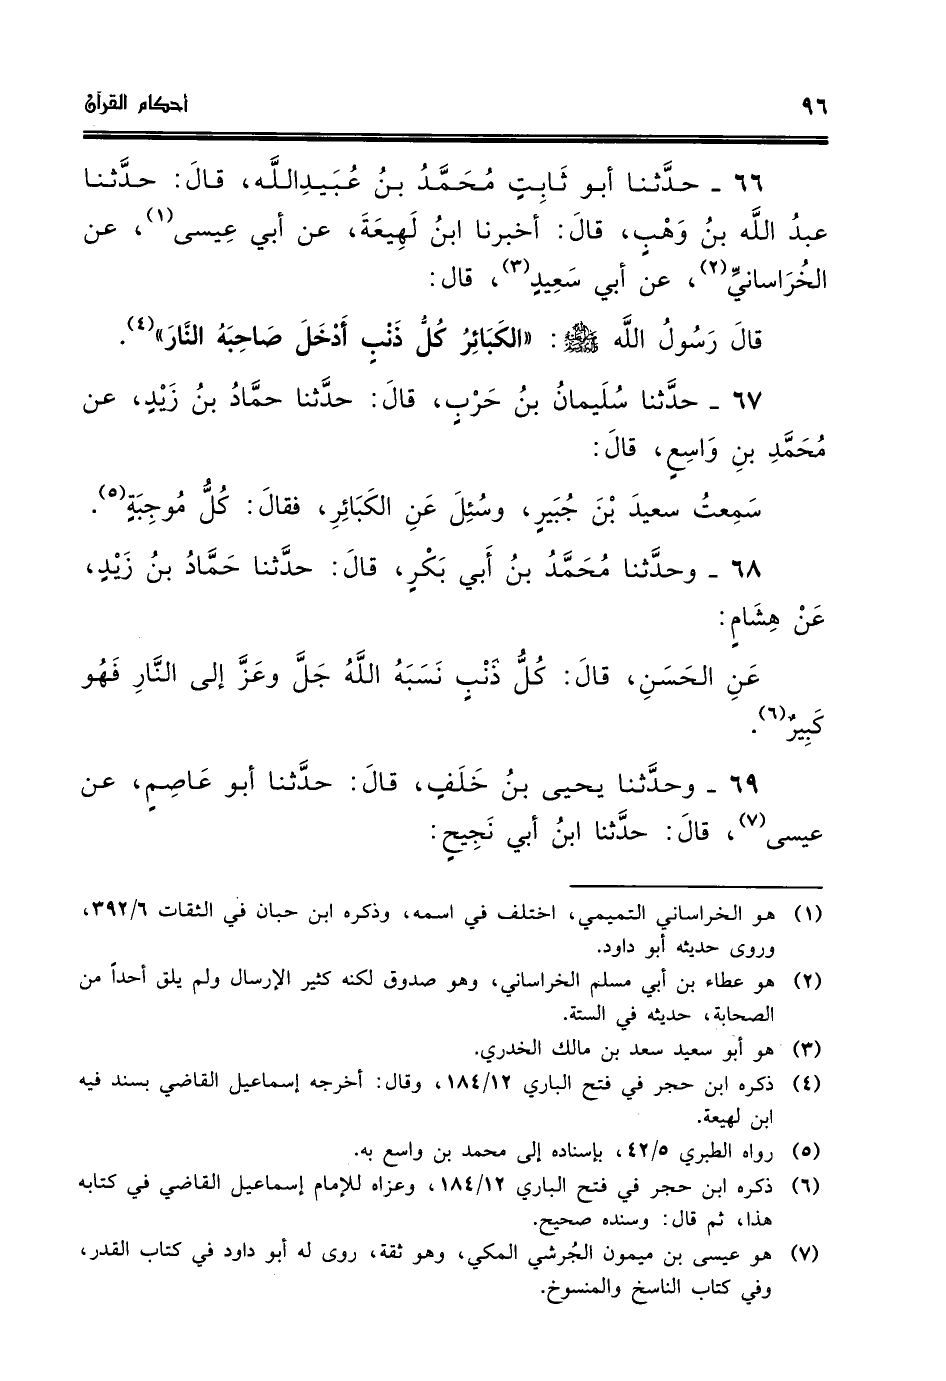 ٩٦
أحكام القرآن
٦٦ ـ حدَّثنا أبو ثَابِتٍ مُحَمَّدُ بنُ عُبَيدِاللَّه، قالَ: حدَّثنا
عبدُ اللَّه بنُ وَهْبٍ، قالَ: أخبرنا ابنُ لَهِيعَةَ، عن أبي عِيسى(١)، عن
الخُرَاسانيِّ(٢)، عن أبي سَعِيدٍ(٣)، قال:
قالَ رَسُولُ اللَّه ﷺ: «الكَبَائِرُ كُلُّ ذَنْبٍ أَدْخَلَ صَاحِبَهُ النَّارَ»(٤).
٦٧ ـ حدَّثنا سُلَيمانُ بنُ حَرْبٍ، قالَ: حدَّثنا حمَّادُ بنُ زَيْدٍ، عن
مُحَمَّدِ بنِ وَاسِعٍ، قالَ:
سَمِعتُ سعيدَ بْنَ جُبَيرٍ، وسُئِلَ عَنِ الكَبَائِرِ، فقالَ: كُلُّ مُوجِبَةٍ(٥).
٦٨ ـ وحدَّثنا مُحَمَّدُ بنُ أَبي بَكْرٍ، قالَ: حدَّثنا حَمَّادُ بنُ زَيْدٍ،
عَنْ هِشَامٍ:
عَنِ الحَسَنِ، قالَ: كُلُّ ذَنْبٍ نَسَبَهُ اللَّهُ جَلَّ وعَزَّ إلى النَّارِ فَهُو
كَبِيرٌ(٦).
٦٩ ـ وحدَّثنا يحيى بنُ خَلَفٍ، قالَ: حدَّثنا أبو عَاصِمٍ، عن
عيسى(٧)، قالَ: حدَّثنا ابنُ أبي نَجِيحٍ:
(١) هو الخراساني التميمي، اختلف في اسمه، وذكره ابن حبان في الثقات ٣٩٢/٦،
وروى حديثه أبو داود.
(٢) هو عطاء بن أبي مسلم الخراساني، وهو صدوق لكنه كثير الإرسال ولم يلق أحداً من
الصحابة، حديثه في الستة.
(٣) هو أبو سعيد سعد بن مالك الخدري.
(٤) ذكره ابن حجر في فتح الباري ١٨٤/١٢، وقال: أخرجه إسماعيل القاضي بسند فيه
ابن لهيعة.
(٥) رواه الطبري ٤٢/٥، بإسناده إلى محمد بن واسع به.
(٦) ذكره ابن حجر في فتح الباري ١٨٤/١٢، وعزاه للإمام إسماعيل القاضي في كتابه
هذا، ثم قال: وسنده صحيح.
(٧) هو عيسى بن ميمون الجُرشي المكي، وهو ثقة، روى له أبو داود في كتاب القدر،
وفي كتاب الناسخ والمنسوخ.